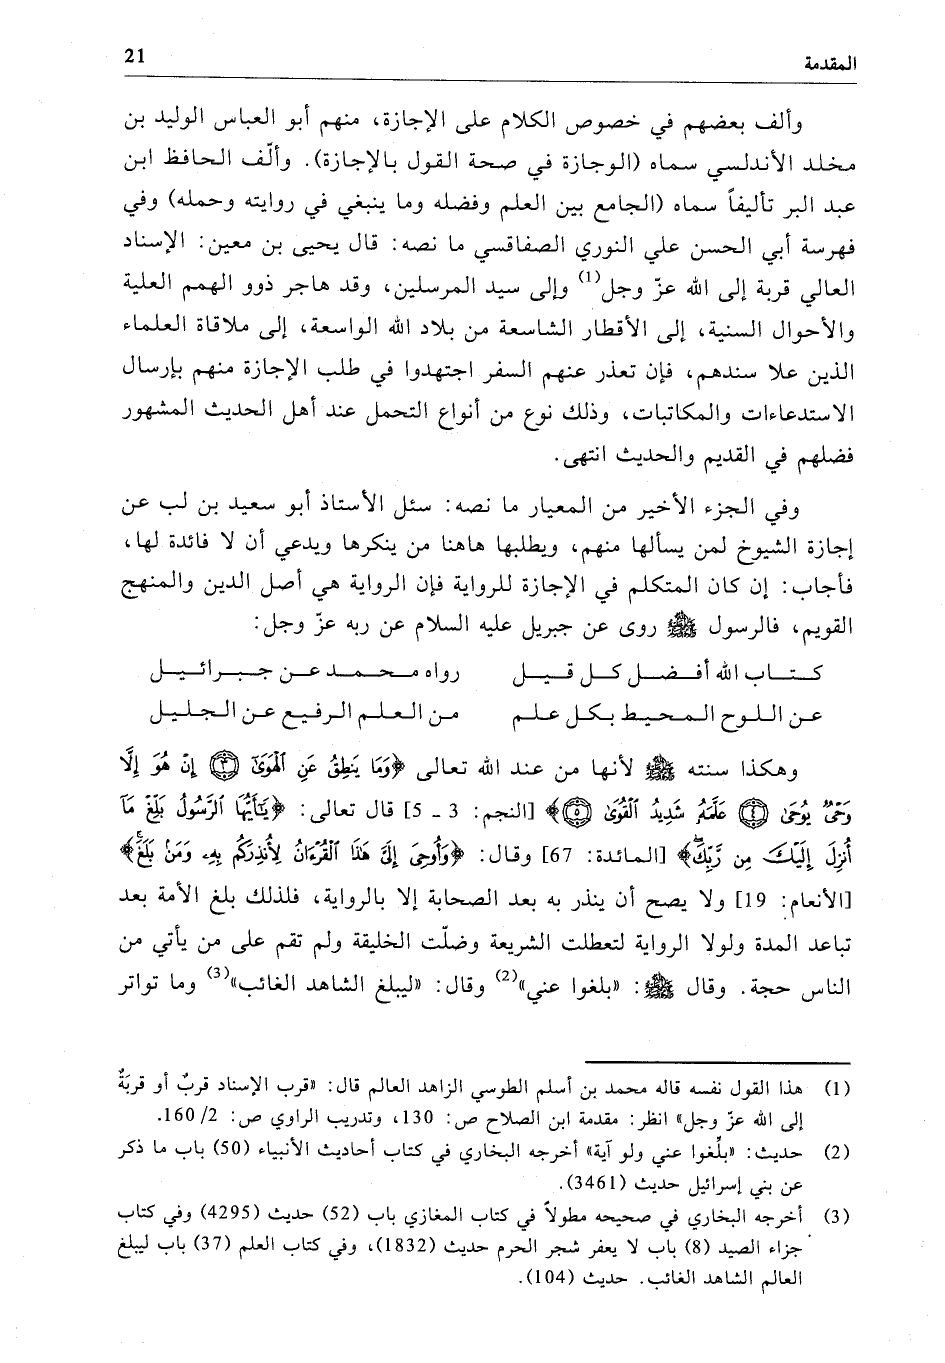 المقدمة 21
وألف بعضهم في خصوص الكلام على الإجازة، منهم أبو العباس الوليد بن
مخلد الأندلسي سماه (الوجازة في صحة القول بالإجازة). وألّف الحافظ ابن
عبد البر تأليفاً سماه (الجامع بين العلم وفضله وما ينبغي في روايته وحمله) وفي
فهرسة أبي الحسن علي النوري الصفاقسي ما نصه: قال يحيى بن معين: الإسناد
العالي قربة إلى الله عزّ وجل(1) وإلى سيد المرسلين، وقد هاجر ذوو الهمم العلية
والأحوال السنية، إلى الأقطار الشاسعة من بلاد الله الواسعة، إلى ملاقاة العلماء
الذين علا سندهم، فإن تعذر عنهم السفر اجتهدوا في طلب الإجازة منهم بإرسال
الاستدعاءات والمكاتبات، وذلك نوع من أنواع التحمل عند أهل الحديث المشهور
فضلهم في القديم والحديث انتهى.
وفي الجزء الأخير من المعيار ما نصه: سئل الأستاذ أبو سعيد بن لب عن
إجازة الشيوخ لمن يسألها منهم، ويطلبها هاهنا من ينكرها ويدعي أن لا فائدة لها،
فأجاب: إن كان المتكلم في الإجازة للرواية فإن الرواية هي أصل الدين والمنهج
القويم، فالرسول ﷺ روى عن جبريل عليه السلام عن ربه عزّ وجل:
كتاب الله أفضل كل قيل رواه محمد عن جبرائيل
عن اللوح المحيط بكل علم من العلم الرفيع عن الجليل
وهكذا سنته ﷺ لأنها من عند الله تعالى ﴿وَمَا يَنطِقُ عَنِ ٱلْهَوَىٰٓ ۝٣ إِنْ هُوَ إِلَّا
وَحْىٌ يُوحَىٰ ۝٤ عَلَّمَهُۥ شَدِيدُ ٱلْقُوَىٰ ۝٥﴾ [النجم: 3 ـ 5] قال تعالى: ﴿يَٰٓأَيُّهَا ٱلرَّسُولُ بَلِّغْ مَآ
أُنزِلَ إِلَيْكَ مِن رَّبِّكَۖ﴾ [المائدة: 67] وقال: ﴿وَأُوحِىَ إِلَىَّ هَٰذَا ٱلْقُرْءَانُ لِأُنذِرَكُم بِهِۦ وَمَنۢ بَلَغَۚ﴾
[الأنعام: 19] ولا يصح أن ينذر به بعد الصحابة إلا بالرواية، فلذلك بلغ الأمة بعد
تباعد المدة ولولا الرواية لتعطلت الشريعة وضلّت الخليقة ولم تقم على من يأتي من
الناس حجة. وقال ﷺ: «بلغوا عني»(2) وقال: «ليبلغ الشاهد الغائب»(3) وما تواتر
(1) هذا القول نفسه قاله محمد بن أسلم الطوسي الزاهد العالم قال: «قرب الإسناد قربٌ أو قربَةٌ
إلى الله عزّ وجل» انظر: مقدمة ابن الصلاح ص: 130، وتدريب الراوي ص: 2/ 160.
(2) حديث: «بلِّغوا عني ولو آية» أخرجه البخاري في كتاب أحاديث الأنبياء (50) باب ما ذكر
عن بني إسرائيل حديث (3461).
(3) أخرجه البخاري في صحيحه مطولاً في كتاب المغازي باب (52) حديث (4295) وفي كتاب
جزاء الصيد (8) باب لا يعفر شجر الحرم حديث (1832)، وفي كتاب العلم (37) باب ليبلغ
العالم الشاهد الغائب. حديث (104).